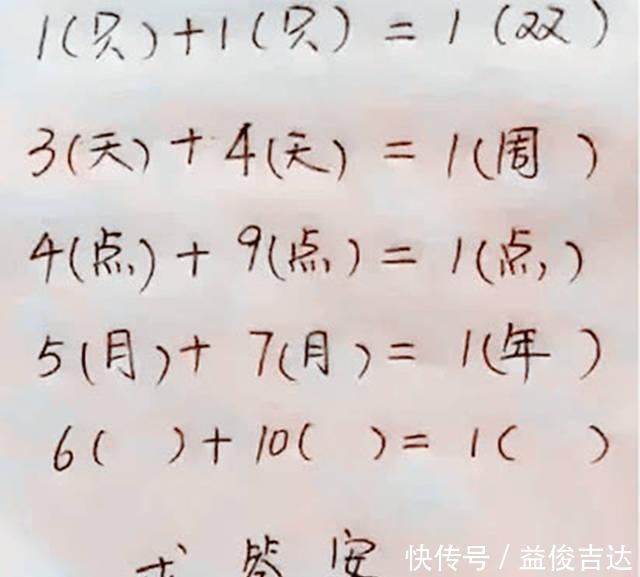 1(只)+1(只)=1(双)
3(天)+4(天)=1(周)
4(点)+9(点)=1(点)
5(月)+7(月)=1(年)
6( )+10( )=1( )
求答案
快传号/益俊吉达